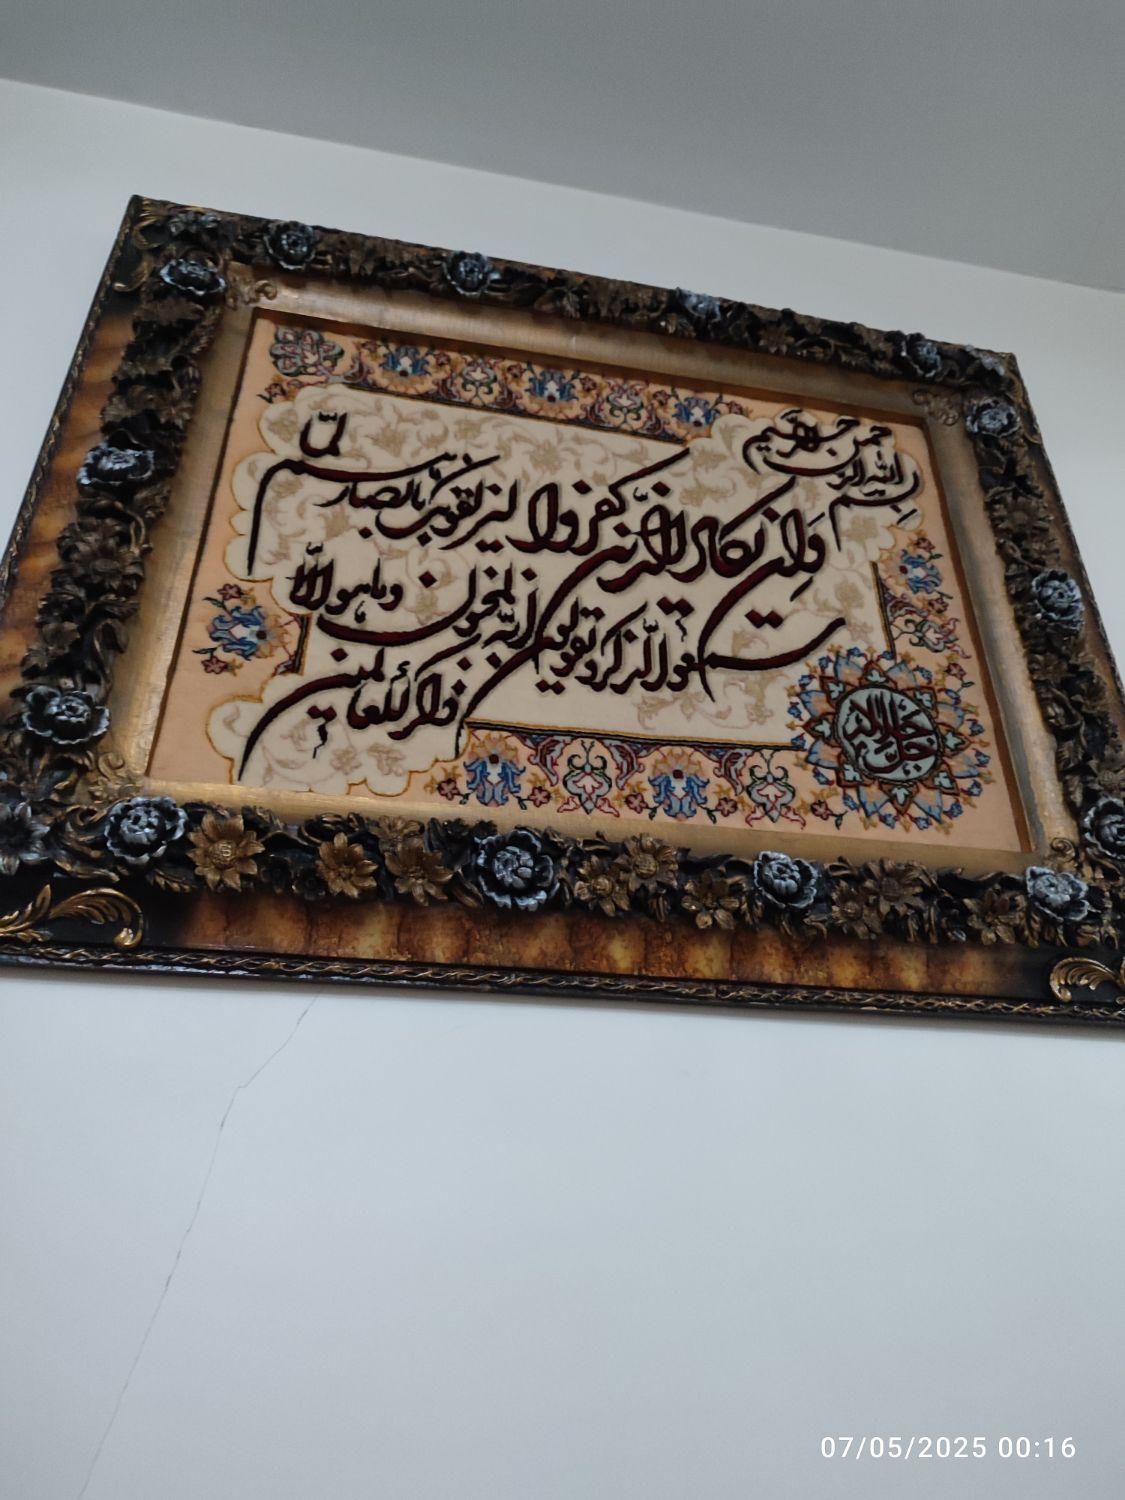 بسم الله الرحمن الرحیم
وَاِن یکاد الذّین کفروا لیزلقونک بابصارهم لمّا
سمعوا الذّکر و یقولون انّه لمجنون و ما هو الّا
ذکر للعالمین
جل جلاله
07/05/2025 00:16